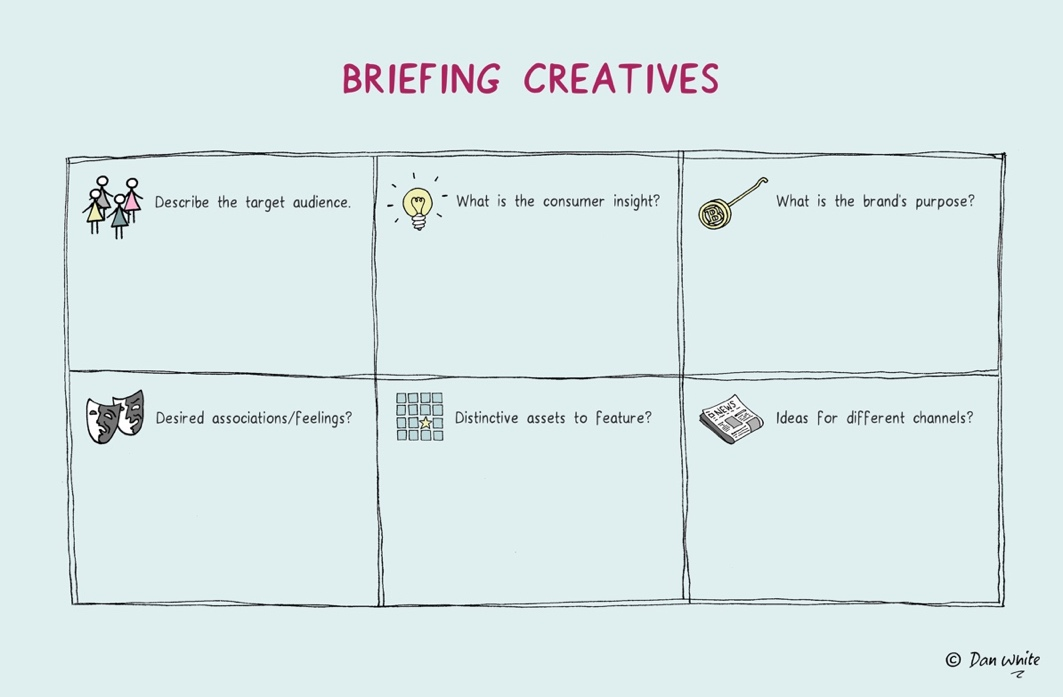 BRIEFING CREATIVES
Describe the target audience.
What is the consumer insight?
B
What is the brand's purpose?
Desired associations/feelings?
Distinctive assets to feature?
NEWS
Ideas for different channels?
© Dan White